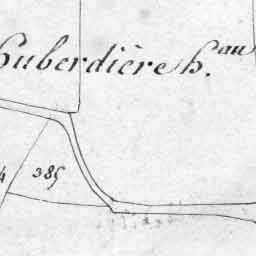 huberdière h.au
4 385